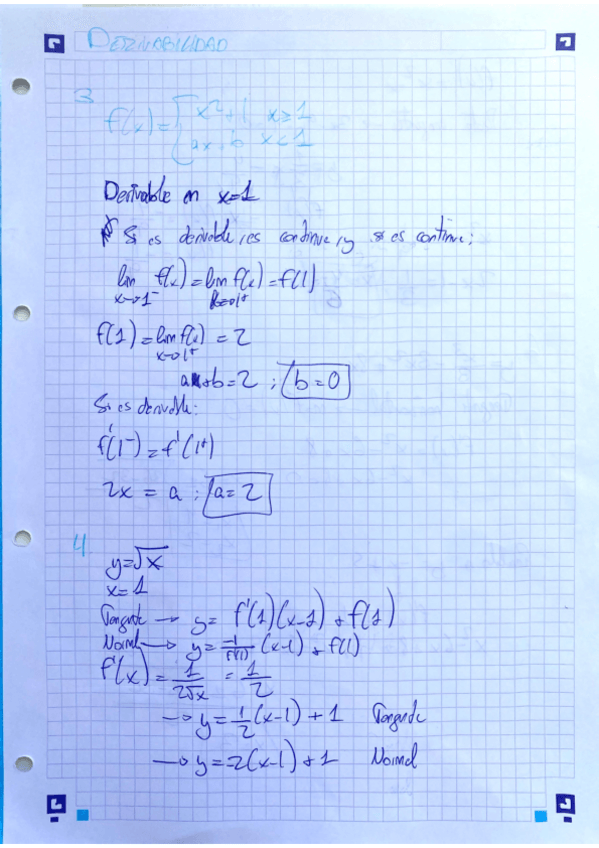 DERIVABILIDAD
3
f(x)={x²+1 x≥1
ax+b x<1
Derivable en x=1
Si es derivable, es continua, y si es continua;
lim f(x)=lim f(x)=f(1)
x→1⁻ x→1⁺
f(1)=lim f(x)=2
x→1⁺
a+b=2 ; b=0
Si es derivable:
f'(1⁻)=f'(1⁺)
2x = a ; a=2
4.
y=√x
x=1
Tangente → y= f'(1)(x-1)+f(1)
Normal → y= -1/f'(1) (x-1)+f(1)
f'(x)= 1/2√x = 1/2
→ y= 1/2(x-1)+1 Tangente
→ y=-2(x-1)+1 Normal